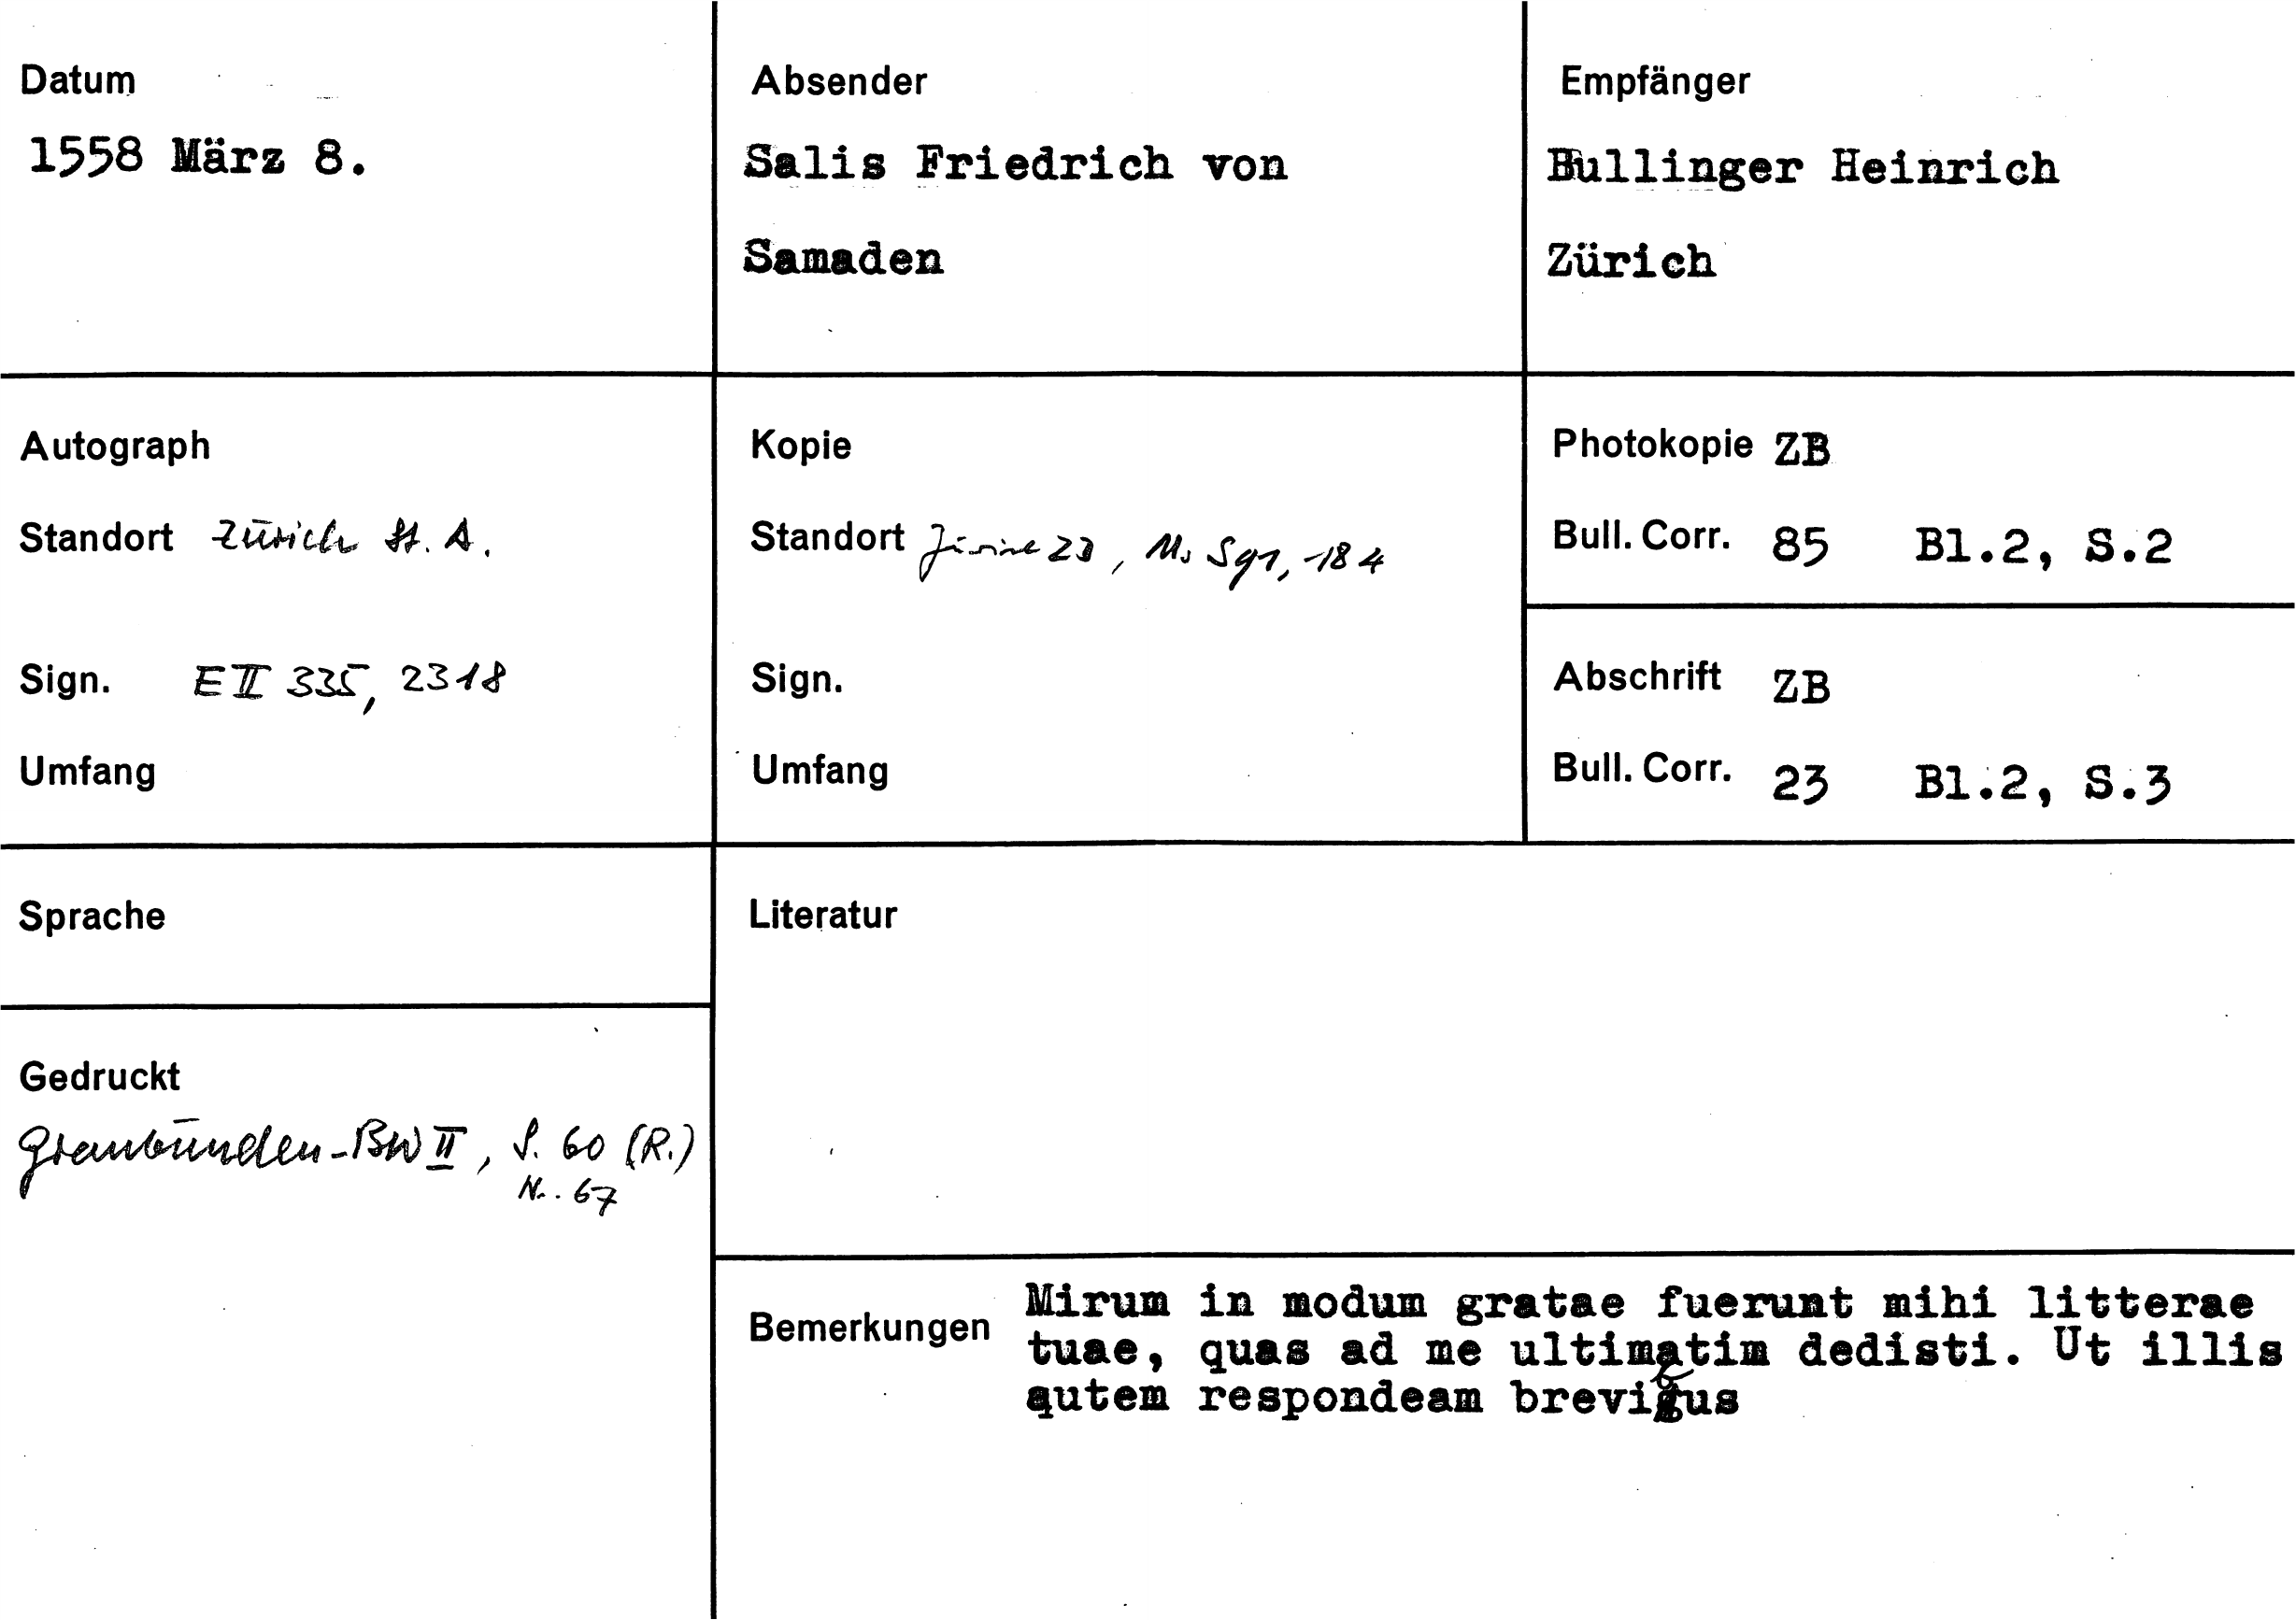 Datum
1558 März 8.
Absender
Salis Friedrich von
Samaden
Empfänger
Bullinger Heinrich
Zürich
Autograph
Standort Zürich St. A.
Sign. E II 335, 2318
Umfang
Kopie
Standort Zürich ZB, Ms S 91, 184
Sign.
Umfang
Photokopie ZB
Bull. Corr. 85 Bl.2, S.2
Abschrift ZB
Bull. Corr. 23 Bl.2, S.3
Sprache
Gedruckt
Graubünden-BW II, S. 60 (R.)
Nr. 67
Literatur
Bemerkungen
Mirum in modum gratae fuerunt mihi litterae
tuae, quas ad me ultimatim dedisti. Ut illis
autem respondeam brevibus